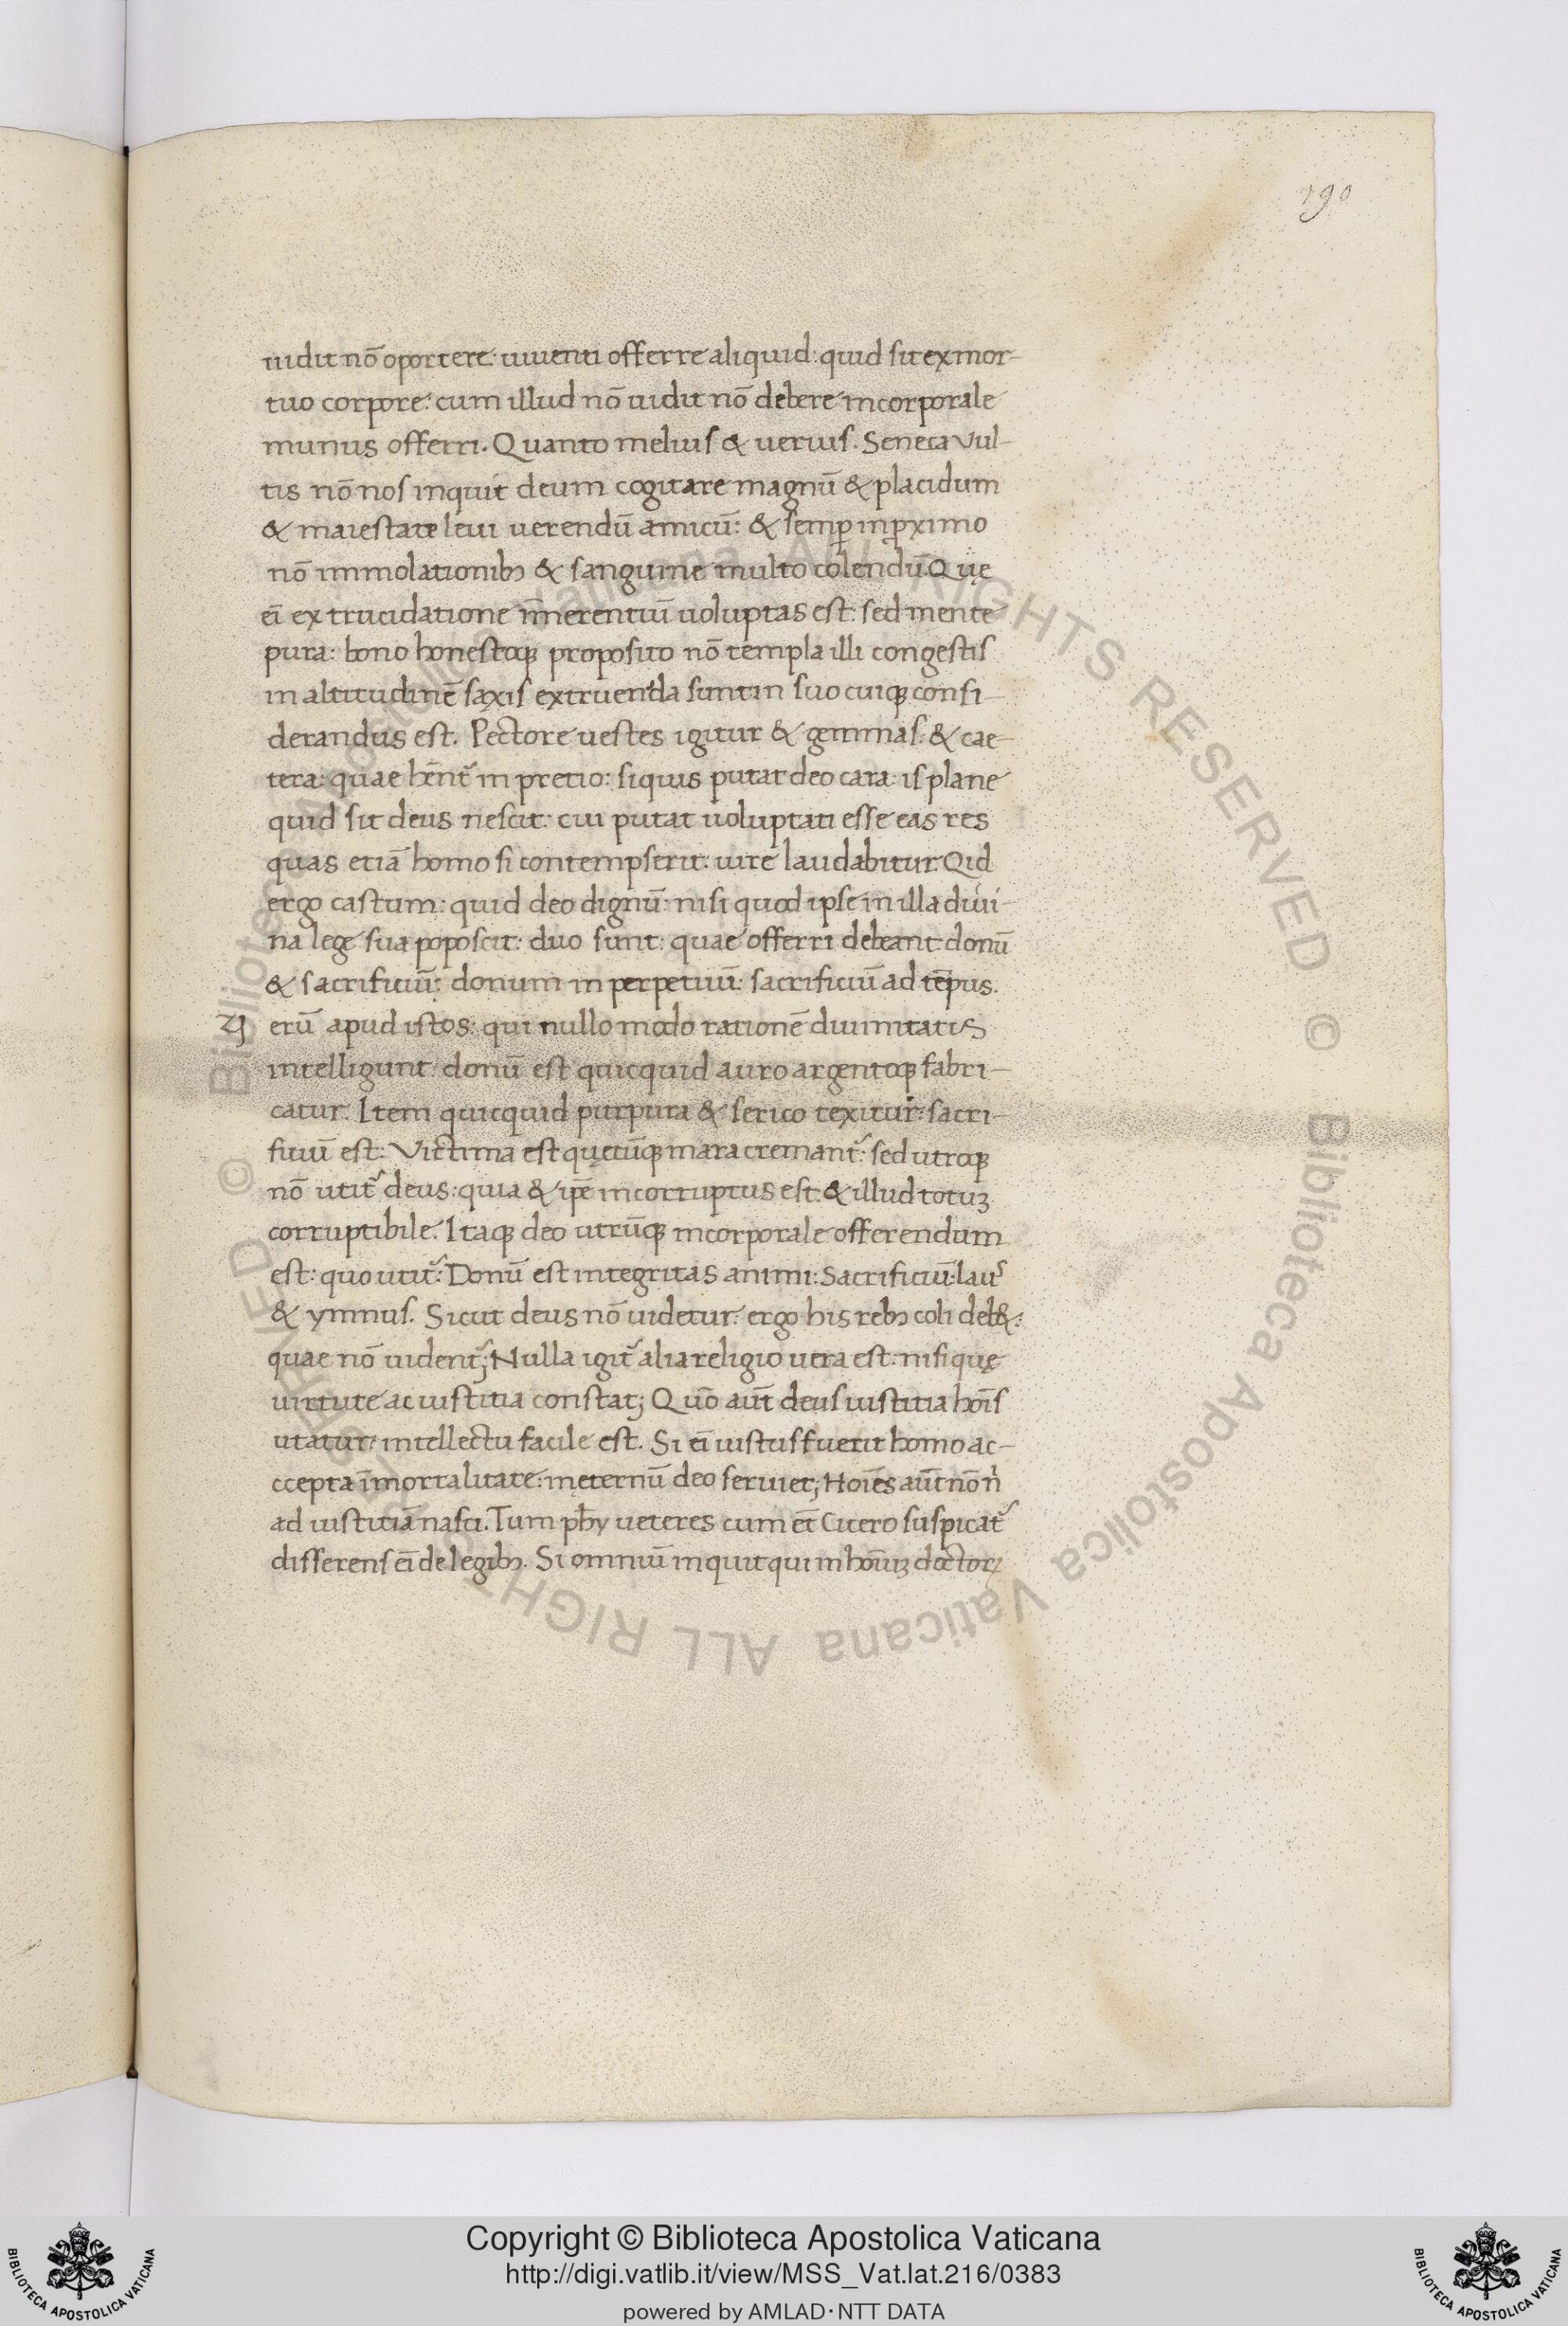 190
uidit nō oportere: uiuenti offerre aliquid: quid sit ex mor-
tuo corpore: cum illud nō uidit nō debere incorporale
munus offerri. Quanto melius & uerius. Seneca Vul-
tis nō nos inquit deum cogitare magnū & placidum
& maiestate leui uerendū amicū: & semꝑ in ꝓximo
nō immolationibꝫ & sanguine multo colendū Quę
eī ex trucidatione īmerentiū uoluptas est: sed mente
pura: bono honestoqꝫ proposito nō templa illi congestis
in altitudinē saxis extruenda sunt in suo cuiqꝫ consi-
derandus est. Pectore uestes igitur & gemmas: & cae-
tera: quae hn̄t᷑ in pretio: siquis putat deo cara: is plane
quid sit deus nescit: cui putat uoluptati esse eas res
quas etiā homo si contempserit: iure laudabitur. Qid
ergo castum: quid deo dignū: nisi quod ipse in illa diui-
na lege sua poposcit: duo sunt: quae offerri debeant: donū
& sacrificiū: donum in perpetuū: sacrificiū ad tēpus.
Uerū apud istos: qui nullo modo rationē diuinitatis
intelligunt: donū est quicquid auro argentoqꝫ fabri-
catur. Item quicquid purpura & serico texitur: sacri-
ficiū est: Victima est quęcūqꝫ in ara cremant᷑: sed utroqꝫ
nō utit᷑ deus: quia & ip̄e incorruptus est: & illud totuꝫ
corruptibile. Itaqꝫ deo utrūqꝫ incorporale offerendum
est: quo utit᷑: Donū est integritas animi: Sacrificiū: lau᷑
& ymnus. Sicut deus nō uidetur: ergo his rebꝫ coli deb&:
quae nō uident᷑; Nulla igit᷑ alia religio uera est: nisi quę
uirtute ac iustitia constat; Quō aūt deus iustitia hoīs
utatur: intellectu facile est. Si eī iustus fuerit homo ac-
ccepta īmortalitate: in ęternū deo seruiet; Hoīes aūt nō n̓
ad iustitiā nasci. Tum phy ueteres cum et̄ Cicero suspicat᷑
disserens eī de legibꝫ. Si omniū inquit qui in hoīuꝫ doctoꝝ
Copyright © Biblioteca Apostolica Vaticana
http://digi.vatlib.it/view/MSS_Vat.lat.216/0383
powered by AMLAD·NTT DATA